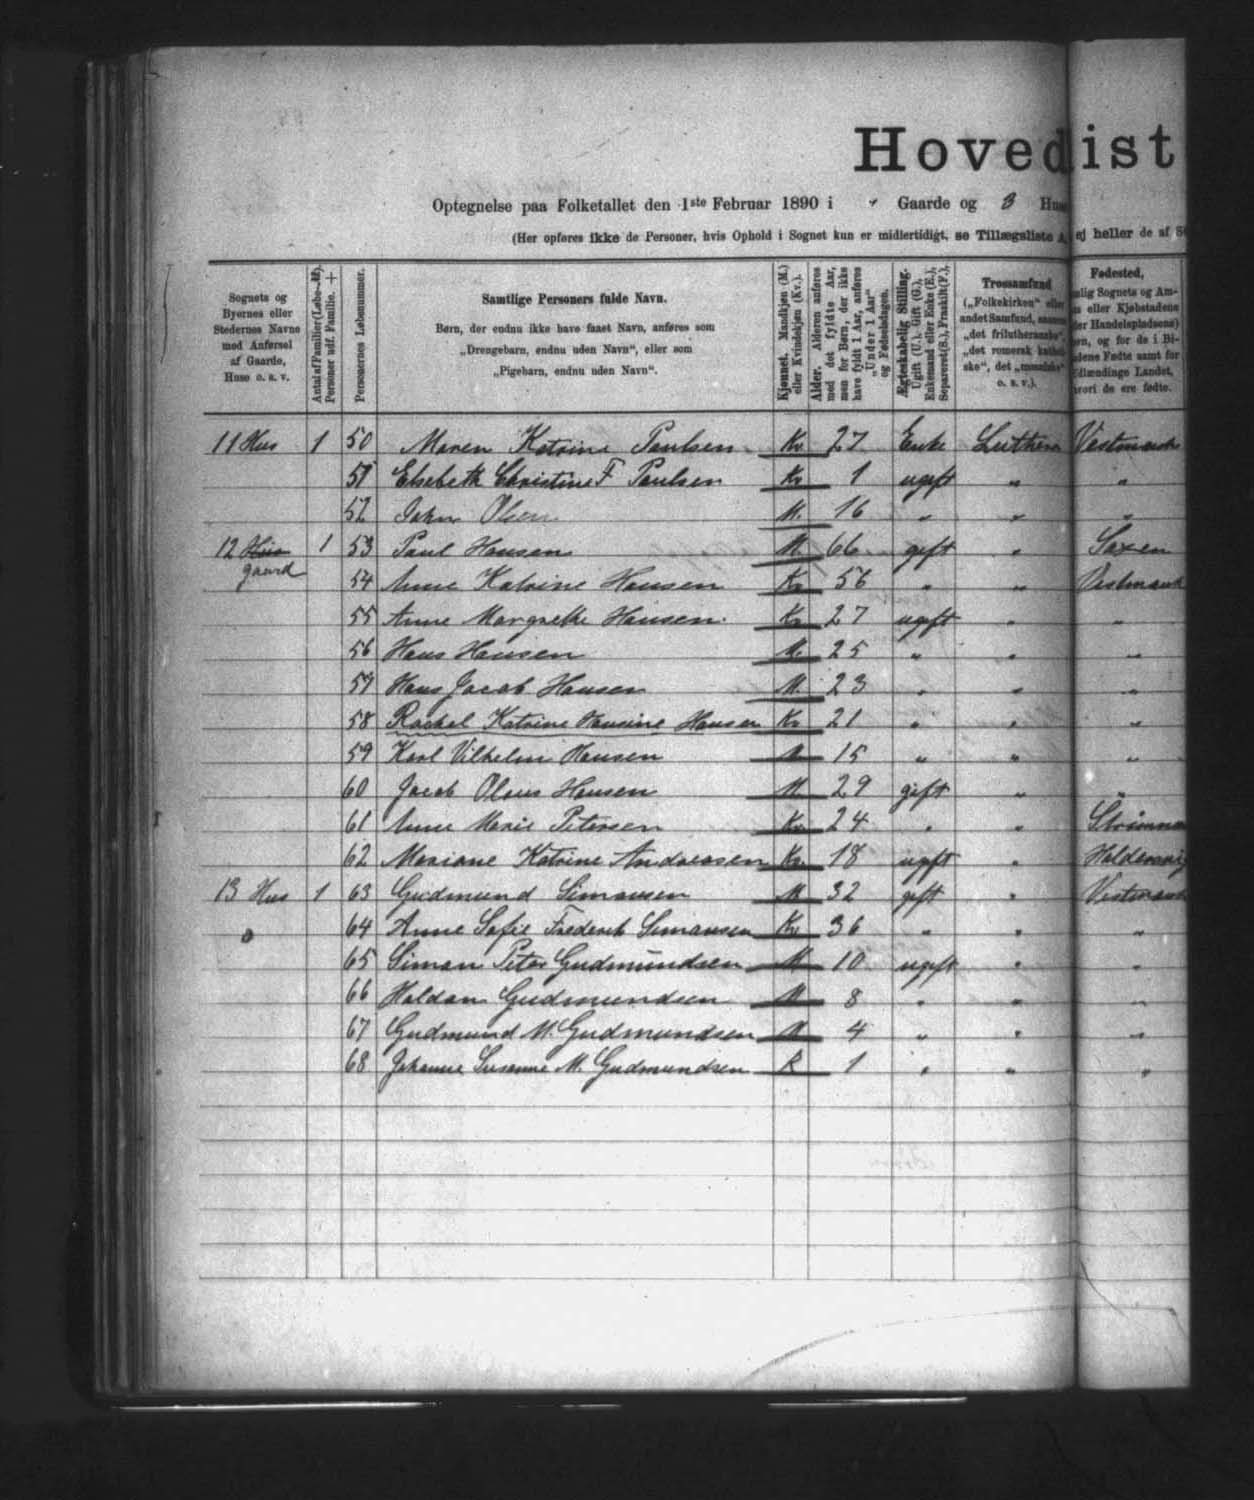 Hovedlist
Optegnelse paa Folketallet den 1ste Februar 1890 i " Gaarde og 3 Huse
(Her opføres ikke de Personer, hvis Ophold i Sognet kun er midlertidigt, se Tillægsliste A, ej heller de af S
Sognets og Byernes eller Stedernes Navne med Anførsel af Gaarde, Huse o. s. v.
Antal af Familier (Løbe-№). Personer udf. Familie. +
Personernes Løbenummer.
Samtlige Personers fulde Navn.
Børn, der endnu ikke have faaet Navn, anføres som
„Drengebarn, endnu uden Navn“, eller som
„Pigebarn, endnu uden Navn“.
Kjønnet. Mandkjøn (M.) eller Kvindekjøn (Kv.).
Alder. Alderen anføres med det fyldte Aar, men for Børn, der ikke have fyldt 1 Aar, anføres „Under 1 Aar“ og Fødselsdagen.
Ægteskabelig Stilling. Ugift (U.), Gift (G.), Enkemand eller Enke (E.), Separeret (S.), Fraskilt (F.).
Trossamfund
(„Folkekirken“ eller
andet Samfund, saasom
„det frilutheranske“,
„det romersk kathol-
ske“, det „mosaiske“
o. s. v.).
Fødested,
nlig Sognets og Am-
s eller Kjøbstadens
er Handelspladsens)
vn, og for de i Bi-
dene Fødte samt for
dlændinge Landet,
vori de ere fødte.
11 Hus 1 50 Maren Katrine Paulsen Kv 27 Enke Luthern Vestmanh
51 Elsebeth Christine F Paulsen Kv 1 ugift " "
52 John Olsen M. 16 " " "
12 Hus 1 53 Paul Hansen M. 66 gift " Saxen
gaard
54 Anne Katrine Hansen Kv 56 " " Vestmanh
55 Anne Margrethe Hansen. Kv 27 ugift " "
56 Hans Hansen M. 25 " " "
57 Hans Jacob Hansen M. 23 " " "
58 Rachel Katrine Hansine Hansen Kv 21 " " "
59 Karl Vilhelm Hansen M 15 " " "
60 Jacob Olaus Hansen M. 29 gift " "
61 Anne Marie Petersen Kv 24 " " Strømnæ
62 Mariane Katrine Andreasen Kv. 18 ugift " Haldersvig
13 Hus 1 63 Gudmund Simonsen M 32 gift " Vestmanh
64 Anne Sofie Frederik Simonsen Kv 36 " " "
65 Simon Peter Gudmundsen M 10 ugift " "
66 Haldan Gudmundsen M 8 " " "
67 Gudmund M. Gudmundsen M 4 " " "
68 Johanne Susanne M. Gudmundsen K 1 " " "